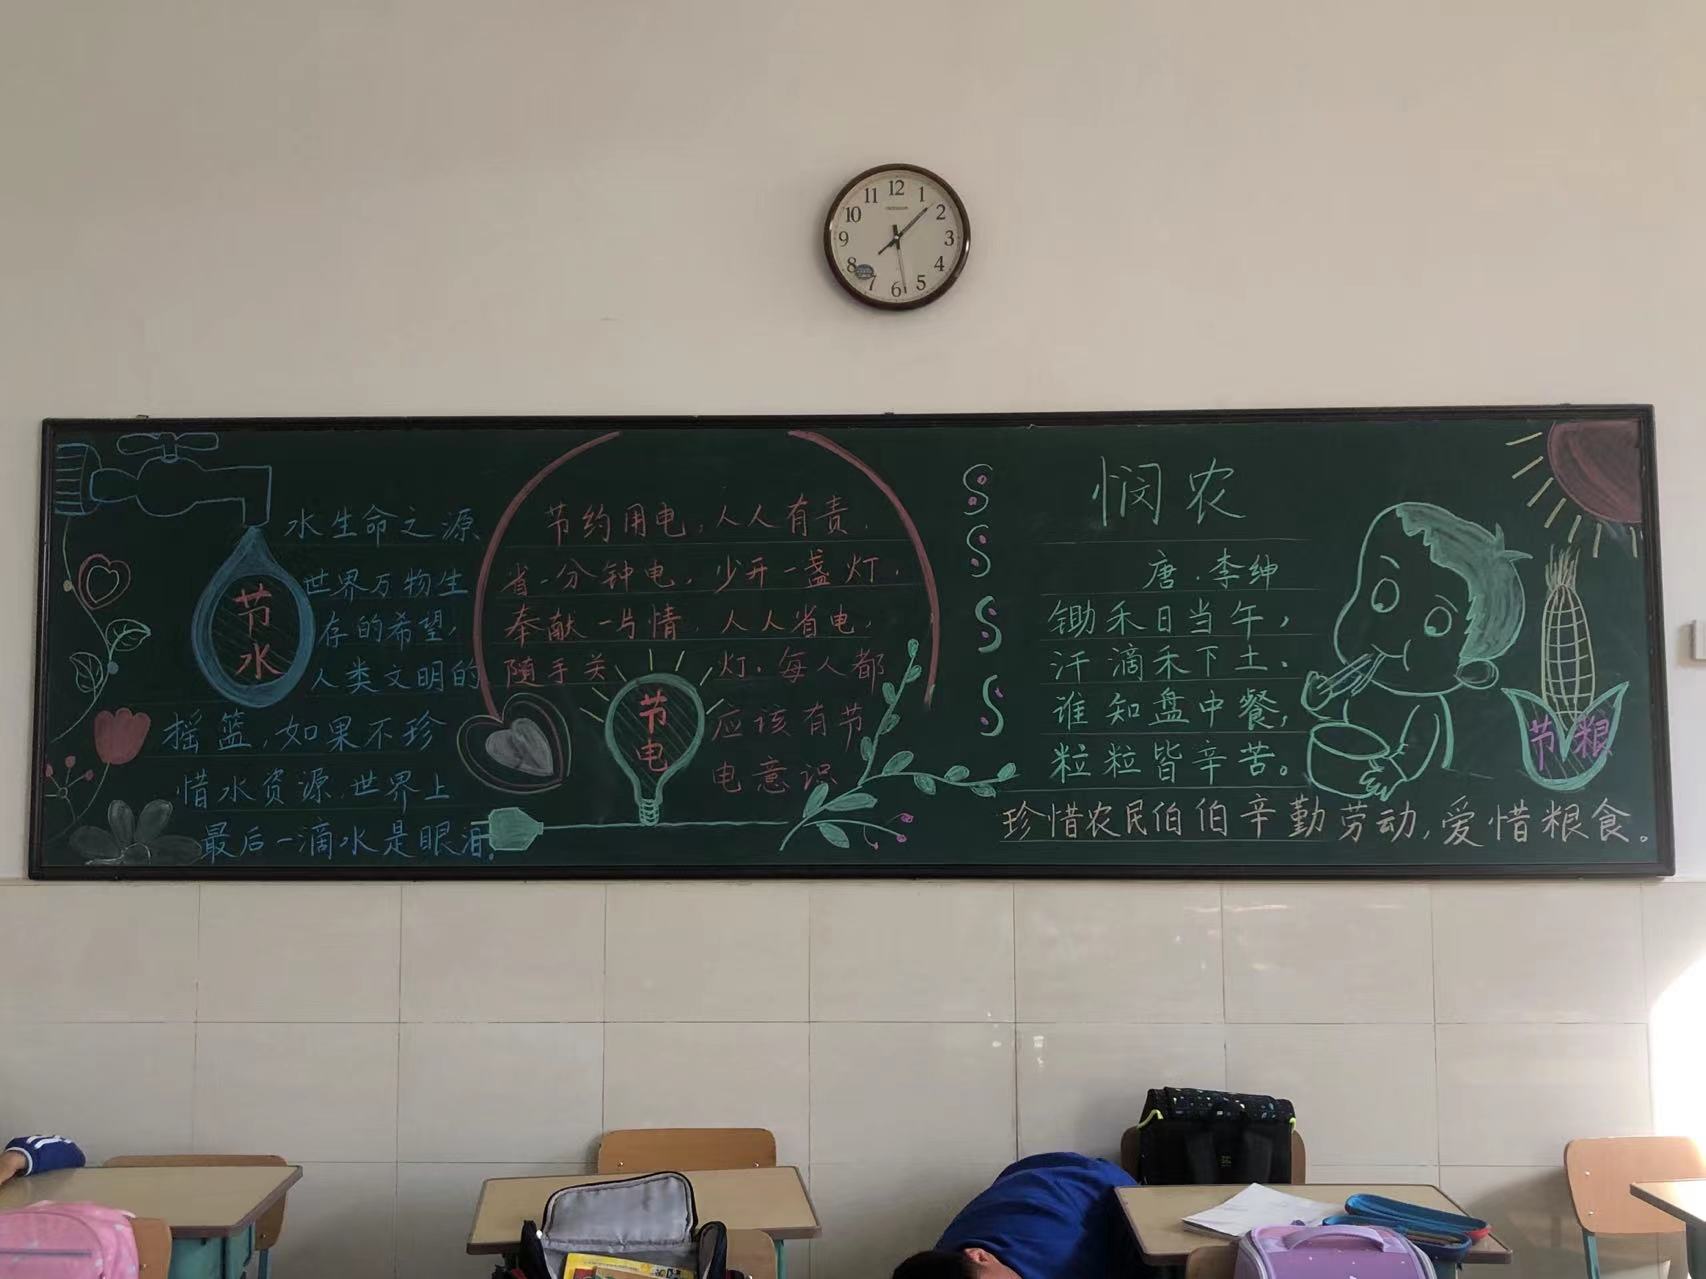 12
1
2
3
4
5
6
7
8
9
10
11
水生命之源
世界万物生
存的希望,
人类文明的
摇篮,如果不珍
惜水资源,世界上
最后一滴水是眼泪。
节水
节约用电,人人有责.
省一分钟电,少开一盏灯.
奉献一片情.人人省电,
随手关灯.每人都
应该有节
电意识
节电
悯农
唐.李绅
锄禾日当午,
汗滴禾下土.
谁知盘中餐,
粒粒皆辛苦。
珍惜农民伯伯辛勤劳动,爱惜粮食。
节粮